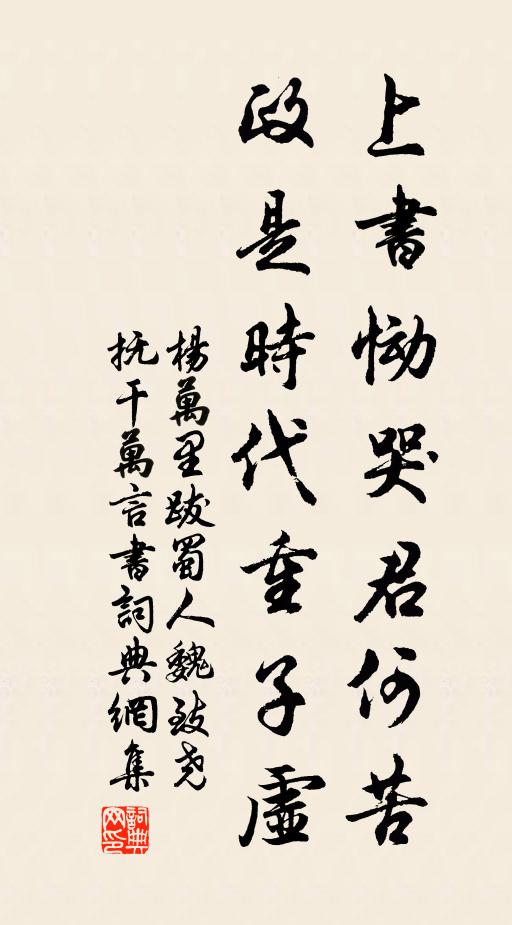 上書慟哭君何苦
政是時代重子虛
楊萬里跋蜀人魏致堯
撫干萬言書詞典網集
詞典網印